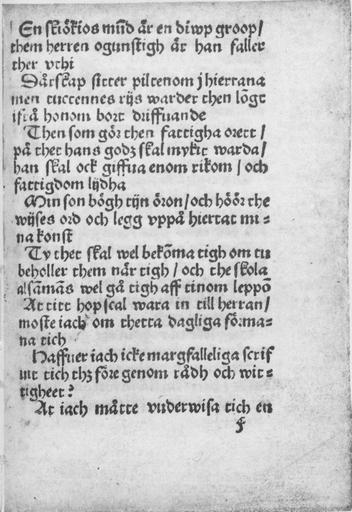 En skiökios mūd är en diwp groop/
them herren ogunstigh är han faller
ther vthi
Dårskap sitter piltenom j hiertana
men tucctennes rijs warder then lōgt
ifrå honom bort driffuande
Then som gör then fattigha orett/
på thet hans godz skal mykit warda/
han skal ock giffua enom rikom/och
fattigdom lijdha
Min son bögh tijn öron/och höör the
wijses ord och legg vppå hiertat mi-
na konst
Ty thet skal wel bekōma tigh om tu
beholler them når tigh/och the skola
alsāmās wel gå tigh aff tinom leppō
At titt hop scal wara in till herran/
moste iach om thetta dagliga förma-
na tich
Haffuer iach icke margfalleliga scrif
uit tich thz före genom rådh och wit-
tigheet?
At iach måtte vnderwisa tich en